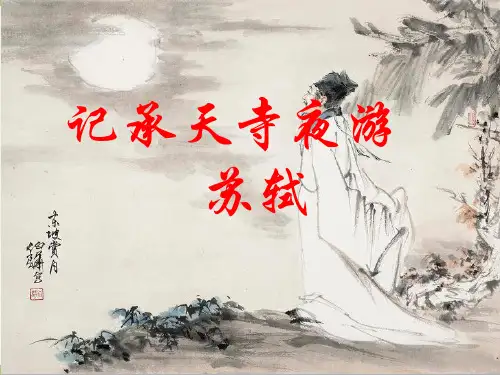 记承天寺夜游
苏轼
东坡赏月